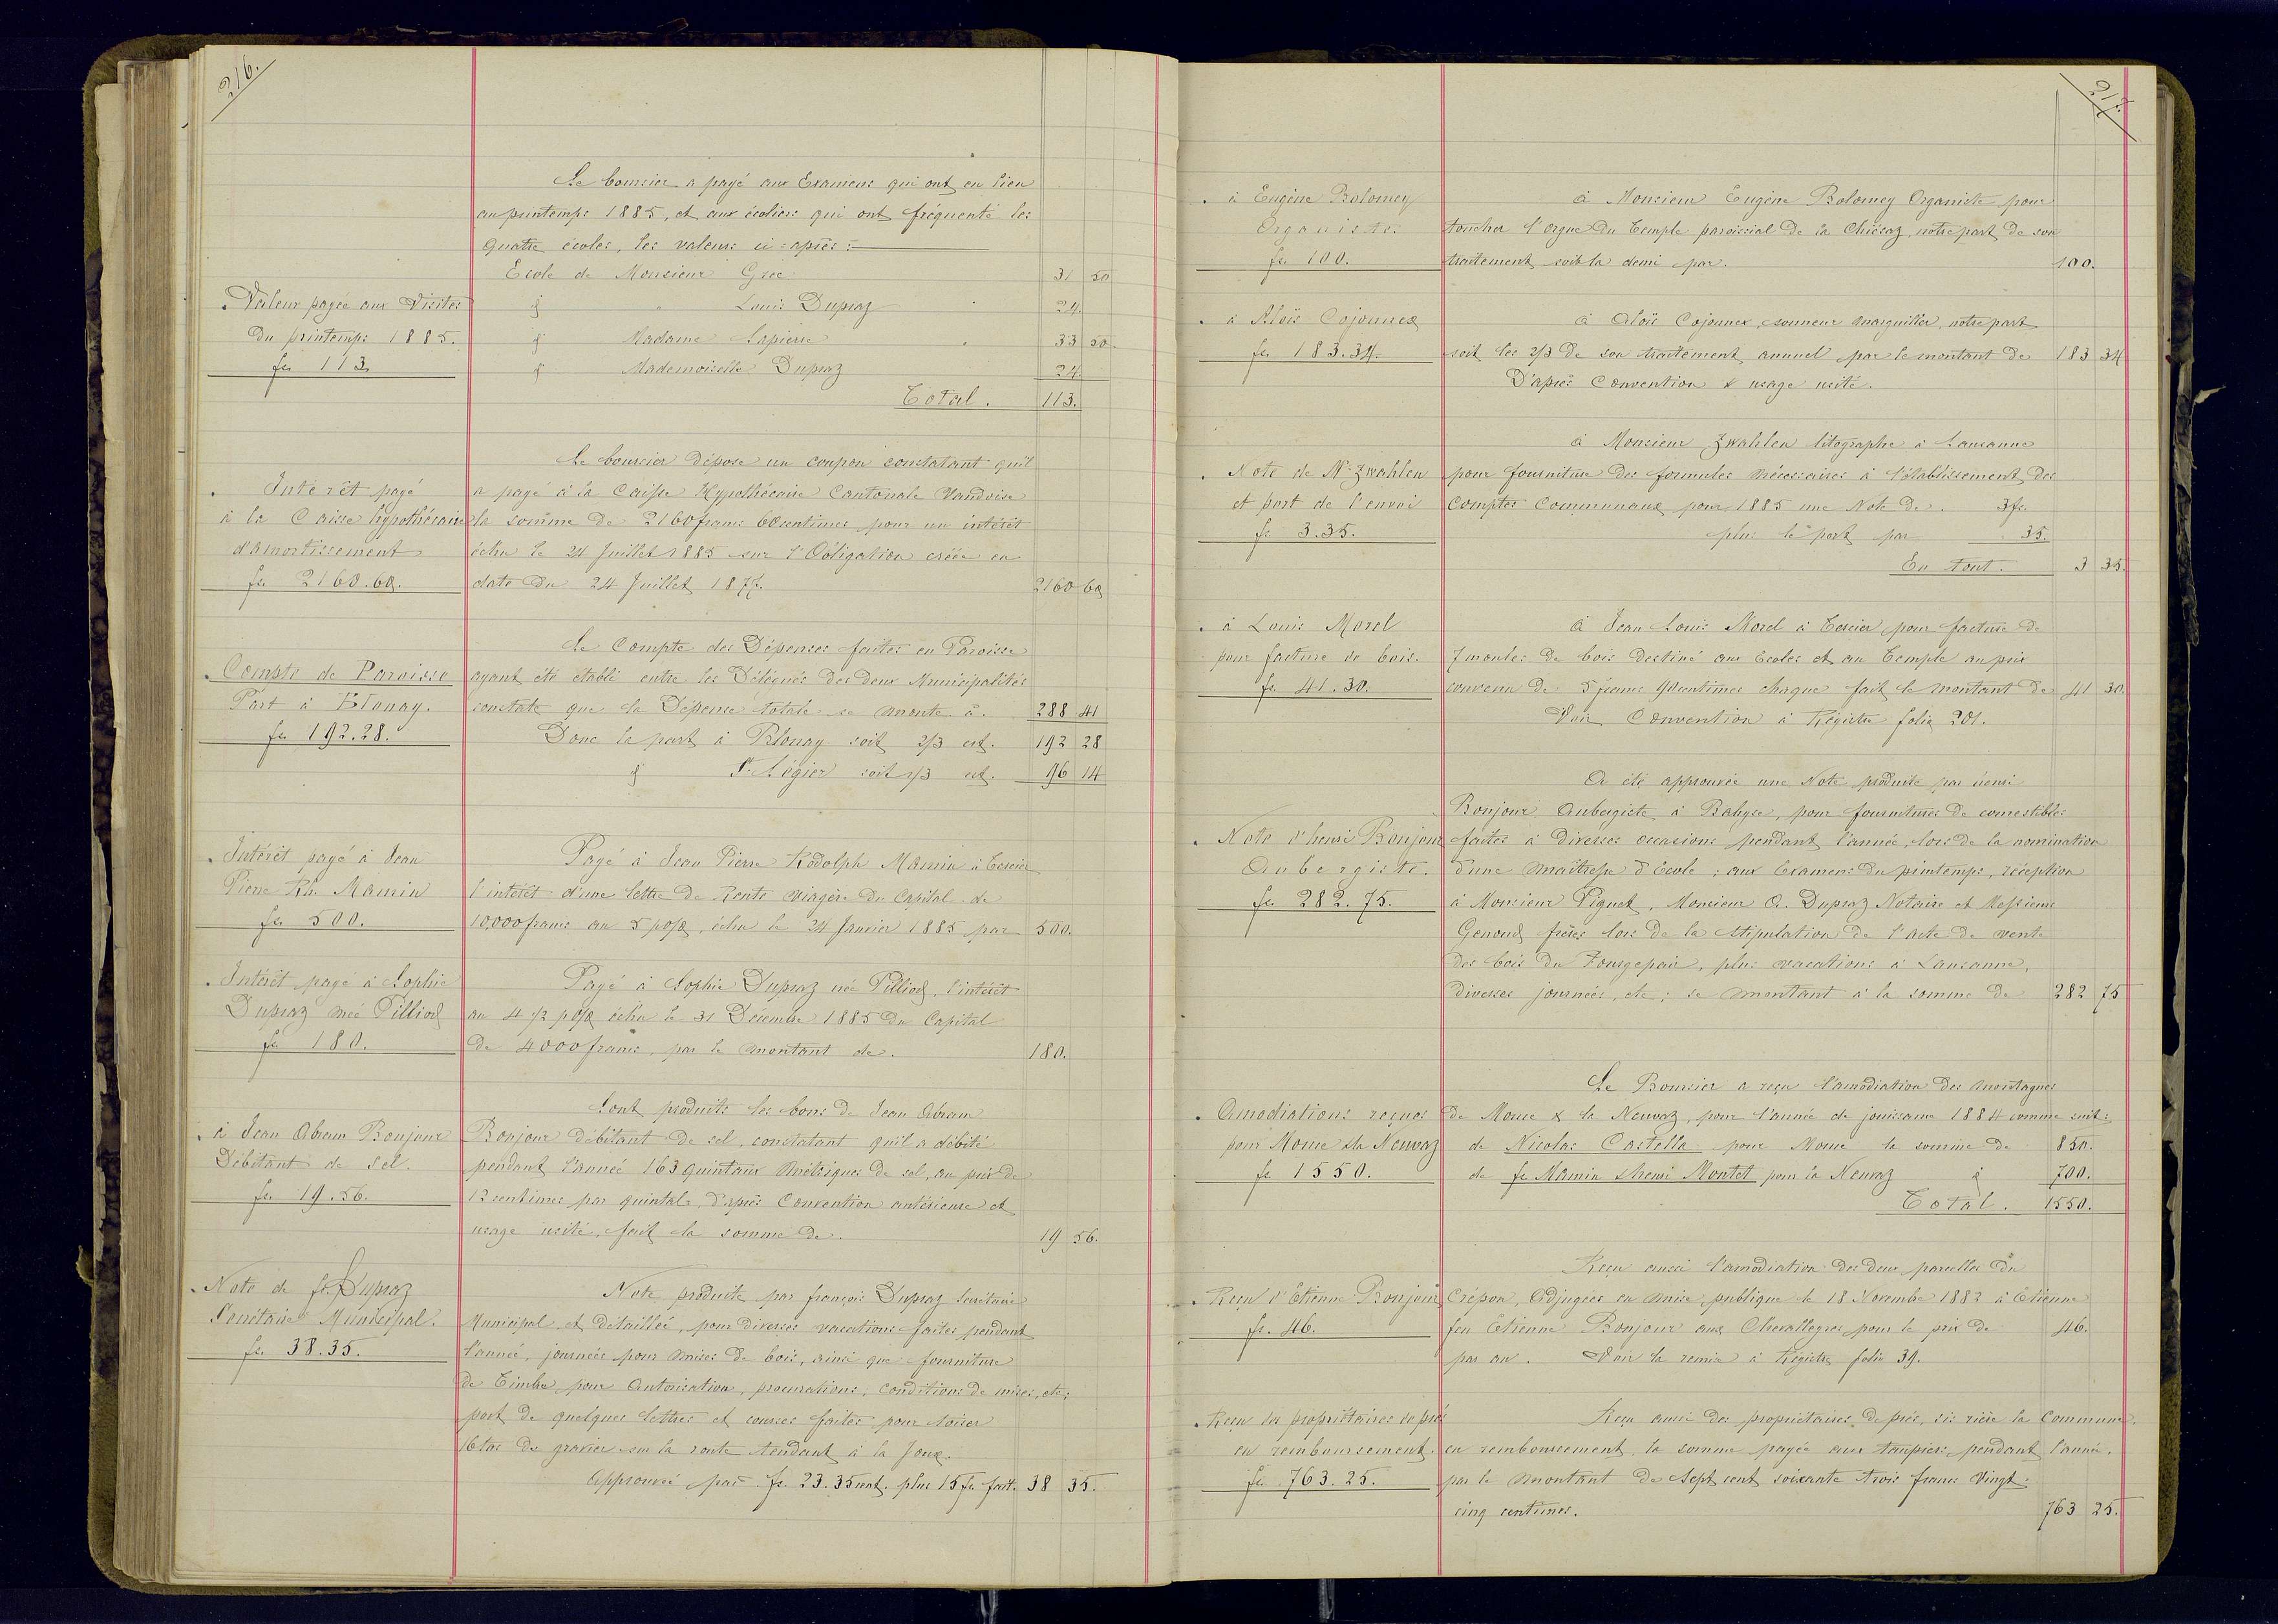 216.
Le boursier a payé aux Examens qui ont eu lieu
au printemps 1885, et aux écoliers qui ont fréquenté les
quatre écoles, les valeurs ci-après:
Ecole de Monsieur Grec 31 50
Valeur payée aux Visites
du printemps 1885.
fr. 113
" Louis Dupraz 24.
Madame Lapierre 33 50.
Mademoiselle Dupraz 24.
Total. 113.
Intérêt payé
à la Caisse hypothécaire
d'amortissement
fr. 2160.60.
Le boursier dépose un coupon constatant qu'il
a payé à la Caisse Hypothécaire Cantonale Vaudoise
la somme de 2160 francs 60 centimes pour un intérêt
échu le 24 Juillet 1885 sur l'Obligation créée en
date du 24 Juillet 1877. 2160 60
Compte de Paroisse
Part à Blonay.
fr. 192.28.
Le Compte des Dépenses faites en Paroisse
ayant été établi entre les Délégués des deux Municipalités
constate que la Dépense totale se monte à. 288 41
Donc la part à Blonay soit 2/3 est. 192 28
St. Légier soit 1/3 est. 96 14
Intérêt payé à Jean
Pierre Rh. Mamin
fr. 500.
Payé à Jean Pierre Rodolph Mamin à Tercier
l'intérêt d'une lettre de Rente viagère du Capital de
10,000 francs au 5 po%, échu le 24 Janvier 1885 par 500.
Intérêt payé à Sophie
Dupraz née Pilliod
fr. 180.
Payé à Sophie Dupraz née Pilliod, l'intérêt
au 4 1/2 po% échu le 31 Décembre 1885 du Capital
de 4000 francs, par le montant de. 180.
à Jean Abram Bonjour
Débitant de Sel.
fr. 19.56.
Sont produits les bons de Jean Abram
Bonjour débitant de sel, constatant qu'il a débité
pendant l'année 163 quintaux métriques de sel, au prix de
12 centimes par quintal, d'après Convention antérieure et
usage usité, fait la somme de. 19 56.
Note de fs. Dupraz
Secrétaire Municipal.
fr. 38.35.
Note produite par françois Dupraz Secrétaire
Municipal et détaillée, pour diverses vacations faites pendant
l'année, journées pour mises de bois, ainsi que fourniture
de Timbre pour Autorisation, procurations, conditions de mises, etc:
port de quelques lettres et courses faites pour toiser
16 tas de gravier sur la route tendant à la Joux.
Approuvée par fr. 23.35 cent. plus 15 fr. fait. 38 35.
217.
à Eugène Bolomey
Organiste
fr. 100.
à Monsieur Eugène Bolomey Organiste pour
toucher l'orgue du Temple paroissial de la Chiésaz, notre part de son
traitement soit la demi par. 100.
à Aloïs Cojonnex
fr. 183.34.
à Aloïs Cojonnex, sonneur marguiller, notre part
soit les 2/3 de son traitement annuel par le montant de 183 34
D'après Convention & usage usité.
Note de Mr. Zwahlen
et port de l'envoi
fr. 3.35.
à Monsieur Zwahlen litographe à Lausanne
pour fourniture des formules nécessaires à l'établissement des
Comptes Communaux pour 1885 une Note de. 3 fr.
plus le port par 35.
En tout. 3 35.
à Louis Morel
pour facture de bois.
fr. 41.30.
à Jean Louis Morel à Tercier pour facture de
7 moules de bois destiné aux Ecoles et au Temple au prix
convenu de 5 francs 90 centimes chaque fait le montant de 41 30.
Voir Convention à Régistre folio 201.
Note d'henri Bonjour
Aubergiste.
fr. 282.75.
A été approuvée une Note produite par henri
Bonjour Aubergiste à Bahyse, pour fournitures de comestibles
faites à diverses occasions pendant l'année, lors de la nomination
d'une maîtresse d'Ecole; aux Examens du printemps, réception
à Monsieur Piguet, Monsieur A. Dupraz Notaire et Messieurs
Genoud frères lors de la stipulation de l'acte de vente
des bois du, plus vacations à Lausanne,
diverses journées, etc; se montant à la somme de 282 75
Amodiations reçues
pour Morue & la Neuvaz
fr. 1550.
Le Boursier a reçu l'amodiation des montagnes
de Morue & la Neuvaz, pour l'année de jouissance 1884 comme suit:
de Nicolas Castella pour Morue la somme de 850.
de fs. Mamin & henri Montet pour la Neuvaz 700.
Total. 1550.
Reçu d'Etienne Bonjour
fr. 46.
Reçu aussi l'amodiation des deux parcelles du
Crépon, Adjugées en mise publique le 18 Novembre 1882 à Etienne
feu Etienne Bonjour aux Chevalleyres pour le prix de 46.
par an. Voir la remise à Régistre folio 39.
Reçu des propriétaires de prés
en remboursement.
fr. 763.25.
Reçu aussi des propriétaires de prés, sis rière la Commune,
en remboursement, la somme payée aux taupiers pendant l'année.
par le montant de Sept cent soixante trois francs Vingt-
cinq centimes. 763 25.